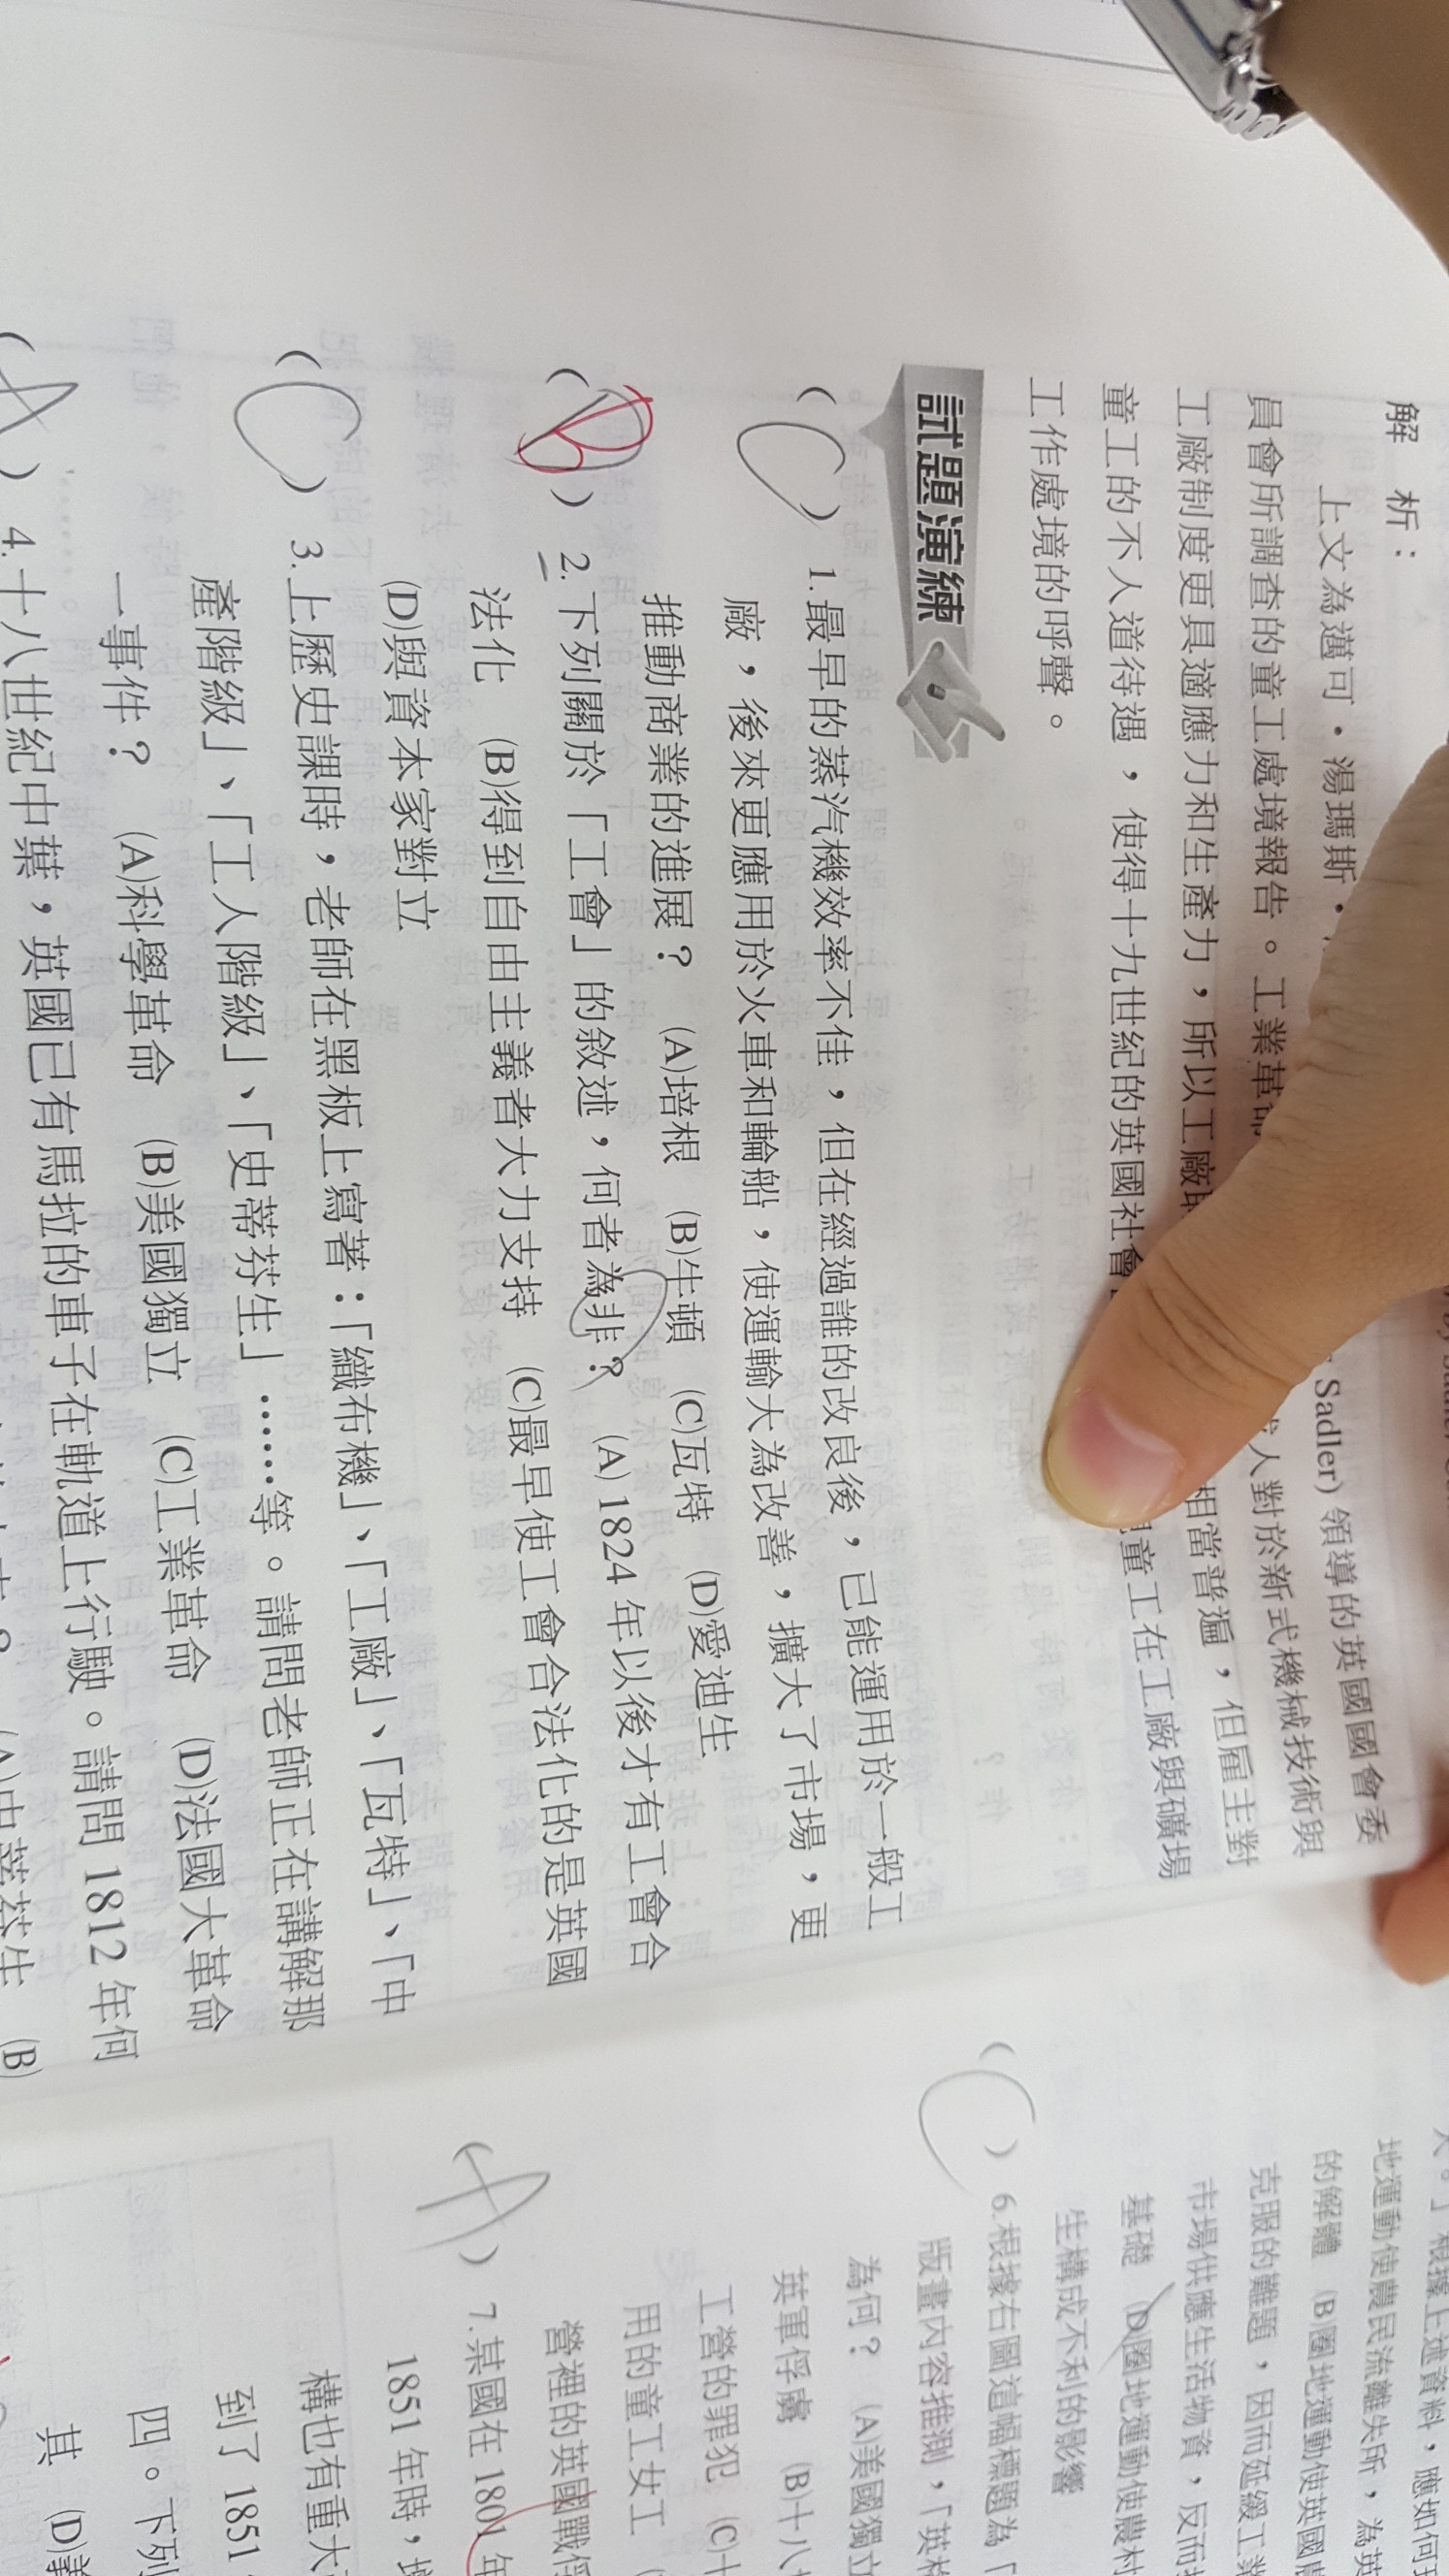 解 析：
上文為邁可．湯瑪斯．
Sadler) 領導的英國國會委
員會所調查的童工處境報告。工業革命
人對於新式機械技術與
工廠制度更具適應力和生產力，所以工廠
相當普遍，但雇主對
童工的不人道待遇，使得十九世紀的英國社會
童工在工廠與礦場
工作處境的呼聲。
試題演練
( C ) 1.最早的蒸汽機效率不佳，但在經過誰的改良後，已能運用於一般工
廠，後來更應用於火車和輪船，使運輸大為改善，擴大了市場，更
推動商業的進展？ (A)培根 (B)牛頓 (C)瓦特 (D)愛迪生
( B ) 2.下列關於「工會」的敘述，何者為非？ (A) 1824 年以後才有工會合
法化 (B)得到自由主義者大力支持 (C)最早使工會合法化的是英國
(D)與資本家對立
( C ) 3.上歷史課時，老師在黑板上寫著：「織布機」、「工廠」、「瓦特」、「中
產階級」、「工人階級」、「史蒂芬生」……等。請問老師正在講解那
一事件？ (A)科學革命 (B)美國獨立 (C)工業革命 (D)法國大革命
( A ) 4.十八世紀中葉，英國已有馬拉的車子在軌道上行駛。請問 1812 年何
(A)史蒂芬生 (B)
大。」根據上述資料，應如何
地運動使農民流離失所，為英
的解體 (B)圈地運動使英國
克服的難題，因而延緩工業
市場供應生活物資，反而
基礎 (D)圈地運動使農村
生構成不利的影響
( C ) 6.根據右圖這幅標題為「
版畫內容推測，「英格
為何？ (A)美國獨立
英軍俘虜 (B)十八
工營的罪犯 (C)十
用的童工女工
營裡的英國戰俘
( A ) 7.某國在 1801 年
1851 年時，
構也有重大
到了 1851
四。下列
其 (D)